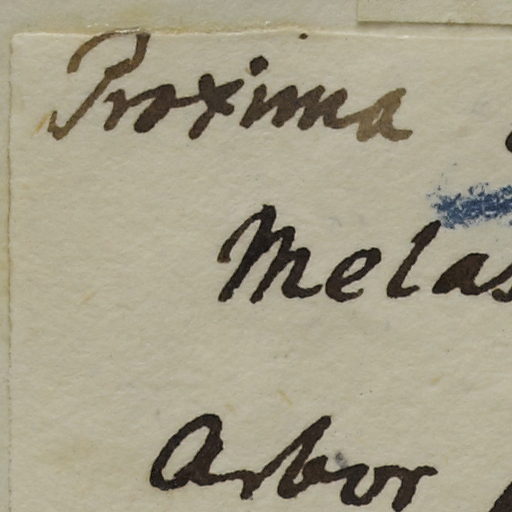 Proxima
Melas
Arbor